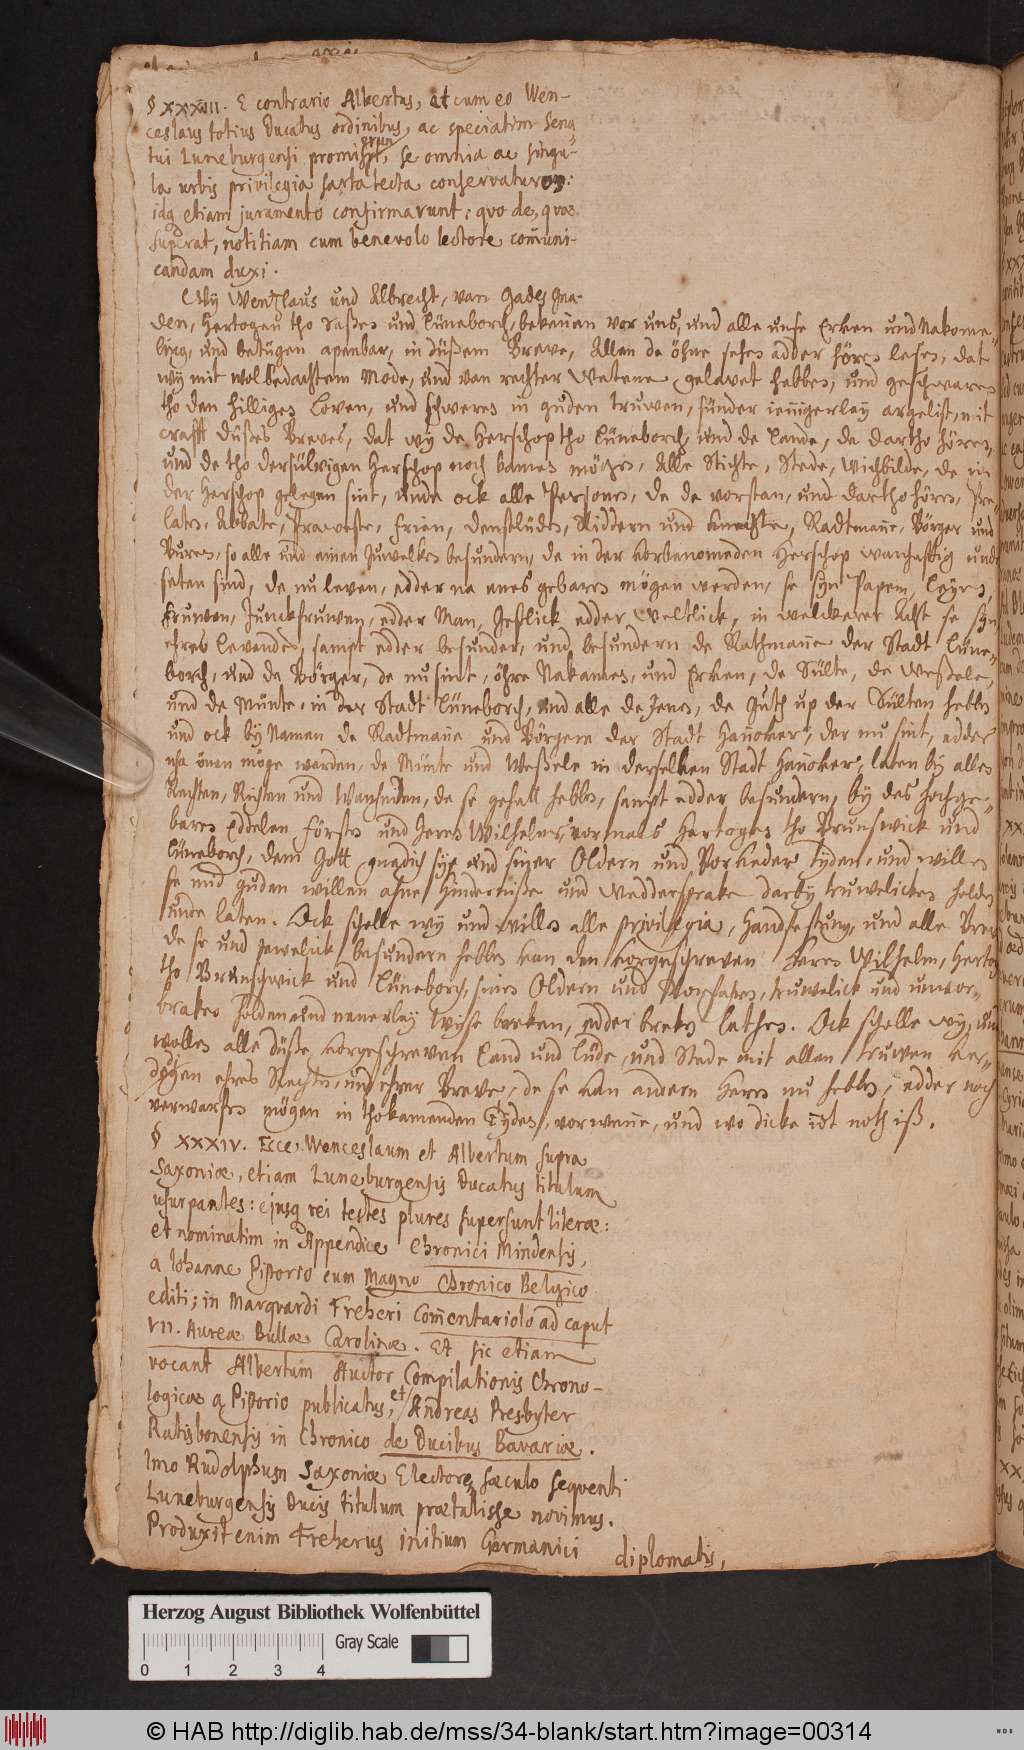 § XXXIII. E contrario Albertus, et cum eo Wen-
ceslaus totius Ducatus ordinibus, ac speciatim Sena-
tui Luneburgensi promiserunt, se omnia ac singu-
la urbis privilegia sarta tecta conservaturos:
idq etiam juramento confirmarunt: quo de, quae
superat, notitiam cum benevolo lectore com̄uni-
candam duxi.
Wy Wenzlaus und Albrecht, van Gades Gna-
den, Hertogen tho Saßen und Lüneborch, bekennen vor uns, und alle unse Erven und Nakome-
ling, und betügen apenbar, in düßem Breve, Allen de öhne sehen adder hören lesen, dat
wy mit wolbedachtem Mode, und van rechter Wetene gelavet hebben, und geschwaren
tho den hilligen loven, und schweren in guden truwen, sünder iennigerley argelist, mit
crafft düßes Breves, dat wy de Herschop tho Lüneborch, und de Lande, de dartho hören,
und de tho dersülvigen Herschop noch kamen mögen, Alle Stichte, Stede, Wichbilde, de in
der Herschop gelegen sint, unde ock alle Personen, de da vorstan, und dartho hören, Pre-
laten, Abbate, Praweste, Frien, Denstlüden, Riddern und Knechte, Radtman̄e, Börger und
Buren, so alle und einen Juwelken besundern, de in der vorbenomeden Herschop wanhafftig unde
seten sind, de nu leven, edder na unes gebaren mögen werden, se syn Papen, Leyen,
Fruwen, Junckfruwen, edder Man, Gestlick edder Weltlick, in welckerer Acht se syn
ehres Levendes, sampt edder besunder, und besundern de Rathman̄e der Stadt Lüne-
borch, und da Börger, de nu sint, öhre Nakamen, und Erven, de Sülte, de Weßele,
und de Münte, in der Stadt Lüneborch, und alle de Jenen, de Guth up der Sülten hebben
und ock by Namen de Radtman̄e und Börgere der Stadt Han̄over, der nu sint, edder
na önen möge werden, de Münte und Weßele in derselken Stadt Han̄over, laten by allen
Rechten, und Wanheiden, de se gehatt hebben, sampt edder besundern, by des hochge-
baren Eddelen Försten und Heren Wilhelms, vormals Hertogen tho Brunswick und
Lüneborch, dem Gott gnedich sye und siner Oldern und Vorheder tyden, und willen
se mid guden willen ahne Hinderniße und Weddersprake darby truwelicken holden
unde laten. Ock schelle wy und willen alle privilegia, Handfestung, und alle Breve
de se und jewelick besundern hebben van den vorgeschreven Heren Wilhelm, Hertog
tho Brunschwick und Lüneborg, sinen Oldern und Vorfahren, truwelick und unvor-
braken holden und nenerley wyse breken, edder breken lathen. Ock schelle wy, und
wollen alle düße vorgeschreven Land und Lüde, und Stede mit allen truwen ver-
dägen ehres Rechtes, und ehrer Breve, de se van andern Heren nu hebben, edder noch
verwarfen mögen in thokamenden Tyden, vorwene, und wo dicke idt noth iß.
§ XXXIV. Ecce Wenceslaum et Albertum supra
Saxoniæ, etiam Luneburgensis Ducatus titulum
usurpantes: ejusq rei testes plures supersunt literæ:
et nominatim in Appendice Chronici Mindensis,
a Iohanne Pistorio cum Magno Chronico Belgico
editi; in Marquardi Freheri Com̄entariolo ad caput
VII. Aureæ Bullæ Carolinæ. Et sic etiam
vocant Albertum Auctor Compilationis Chrono-
logicæ a Pistorio publicatus, et Andreas Presbyter
Ratisbonensis in Chronico de Ducibus Bavariæ.
Imo Rudolphum Saxoniæ Electorem sæculo sequenti
Luneburgensis Ducis titulum prætulisse novimus.
Produxit enim Freherus initium Germanici
diplomatis,
Herzog August Bibliothek Wolfenbüttel
Gray Scale
0 1 2 3 4
© HAB http://diglib.hab.de/mss/34-blank/start.htm?image=00314